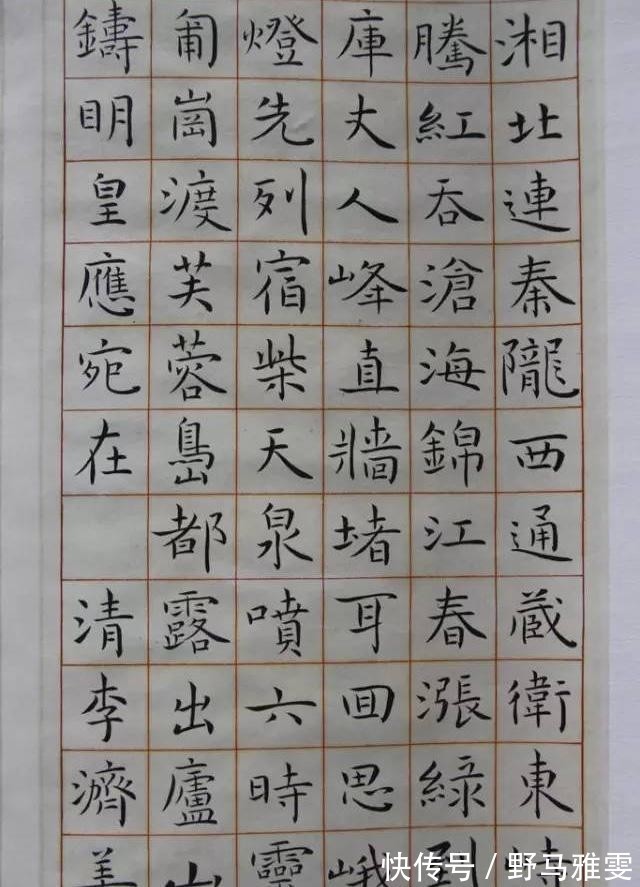 湘北連秦隴西通蔵衛東
騰紅吞滄海錦江春漲綠到
庫丈人峰直牆堵耳回思峨
燈先列宿柴天泉噴六時靈
匍崗渡芙蓉島都露出廬山
鑄明皇應宛在 清李濟美
快传号/野马雅雯